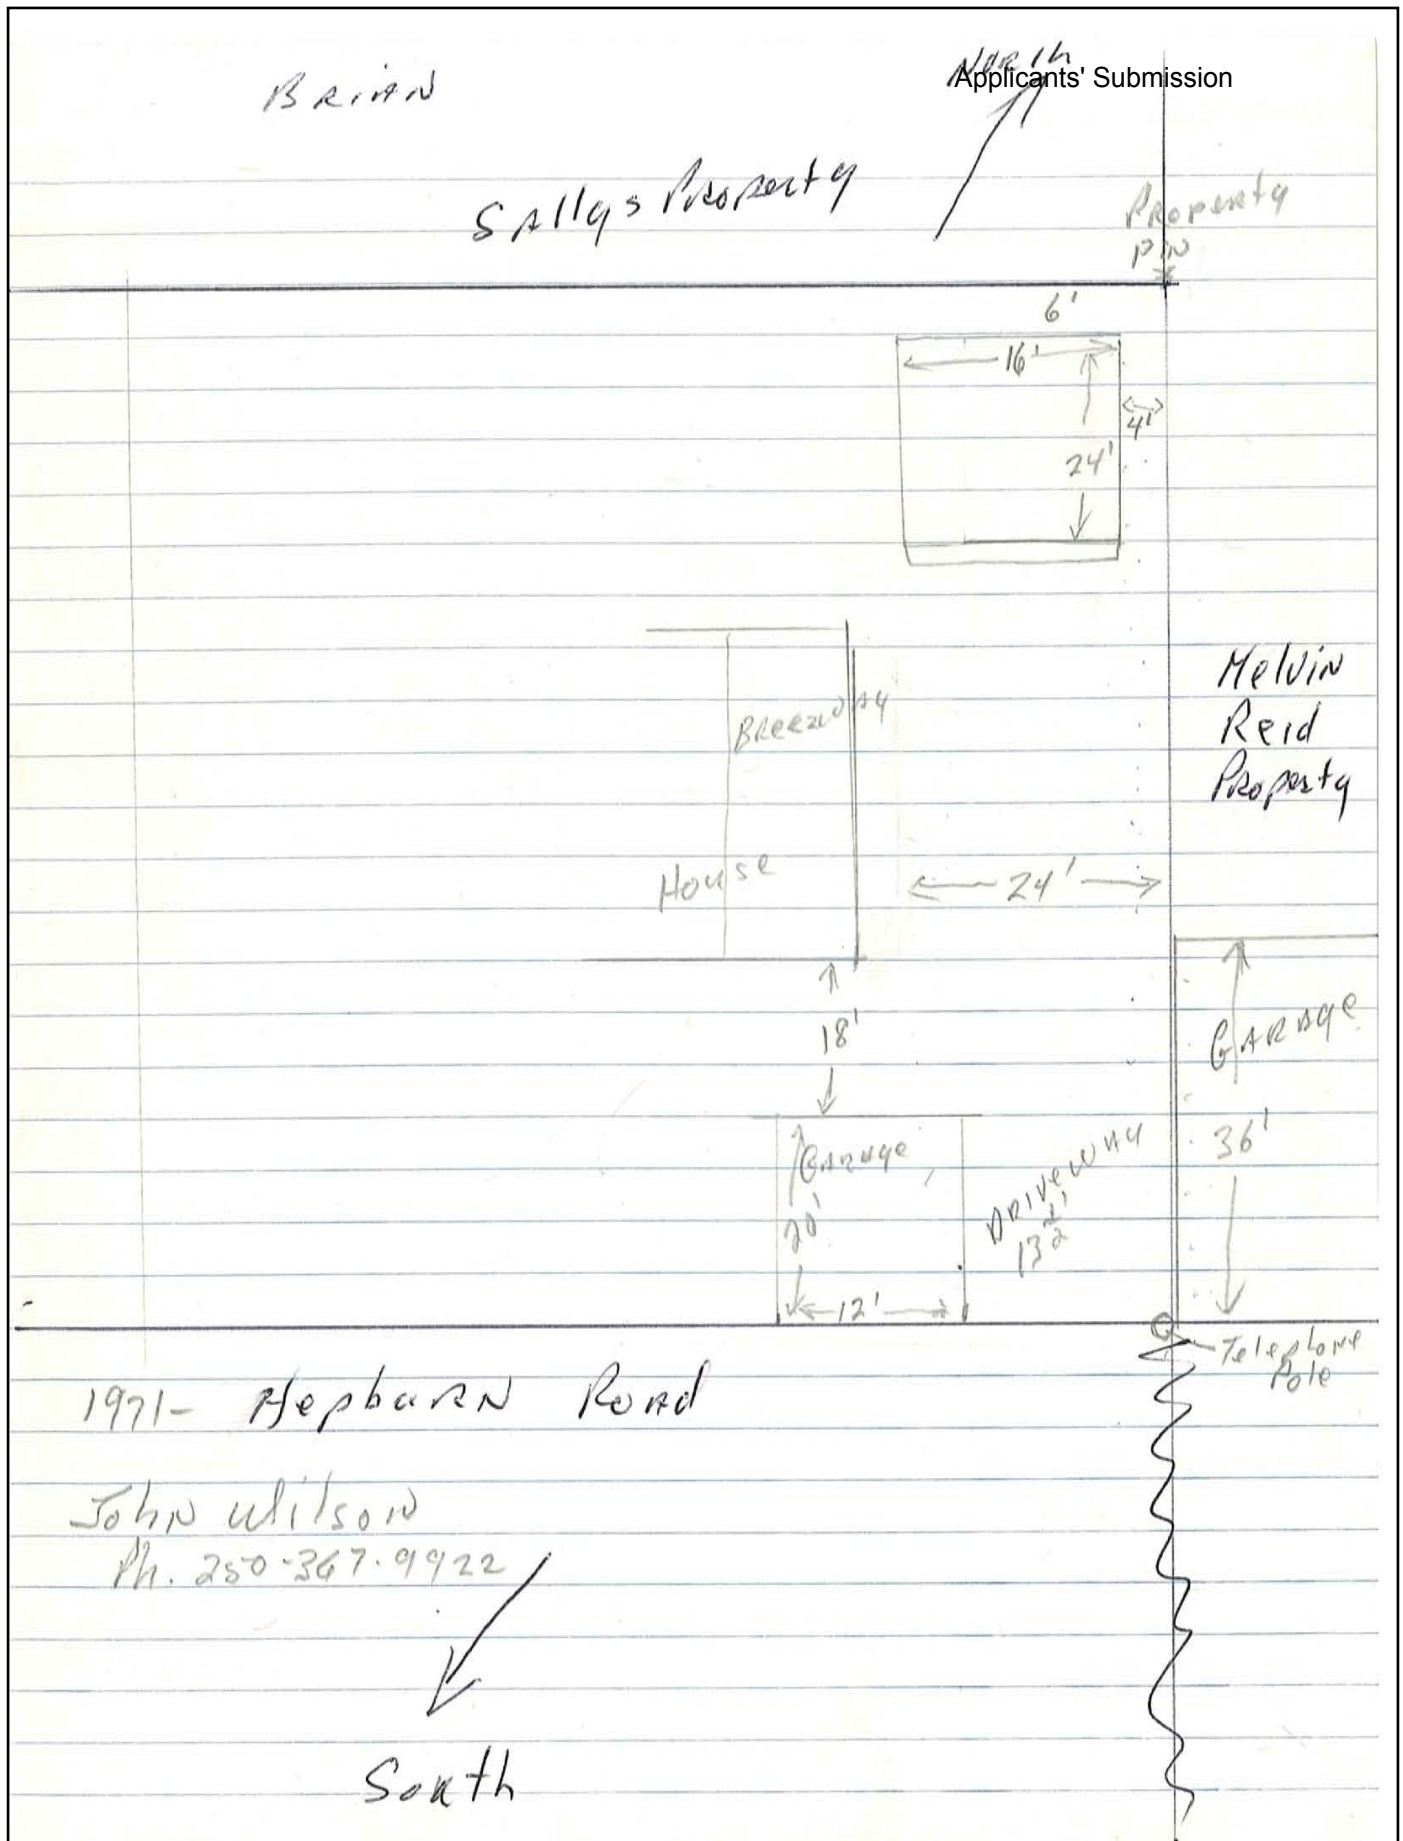 North
Applicants' Submission
BRIAN
SAllys Property
Property
pin
6'
16'
4'
24'
Melvin
Reid
Property
Breezway
House
24'
18'
GARAge
GARAge
36'
20'
DRIVEWAY
13 1/2'
12'
Telephone
Pole
1971- HepbuRN Road
John Wilson
Ph. 250-367-9922
South